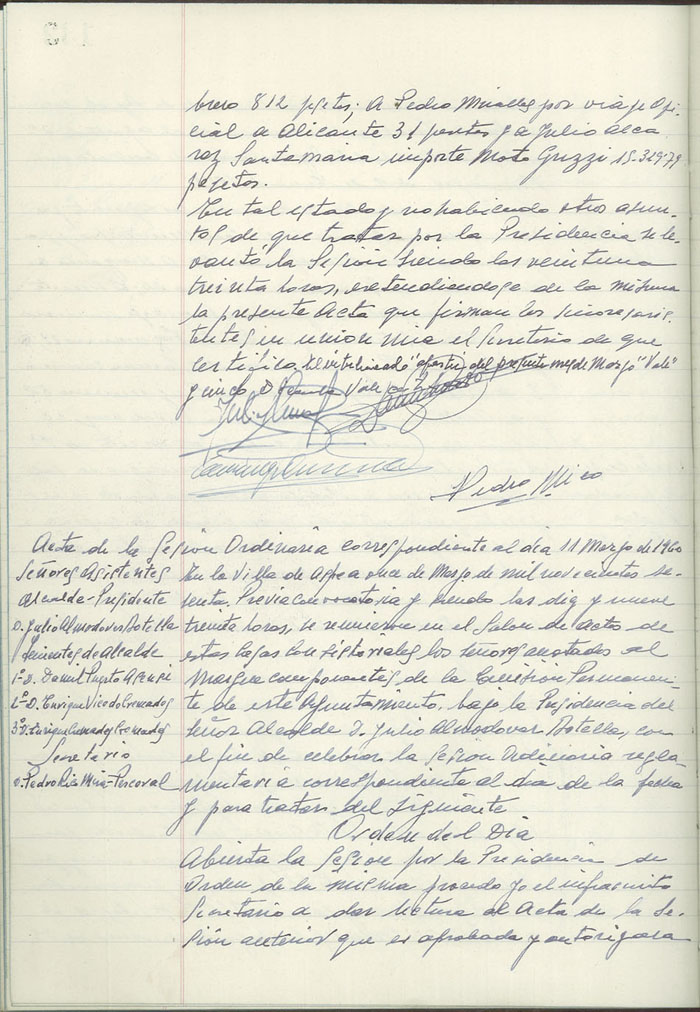 brero 812 ptetas; A Pedro Miralles por viaje Ofi-
cial a Alicante 31 pentas y a Julio Alca
raz Santamaria importe Moto Guzzi 15-329-79
pesetas.
En tal estado y no habiendo otros asun-
tos de que tratar por la Presidencia se le-
vantó la Sesion siendo las veintuna
treinta horas, extendiendose de la misma
la presente Acta que firman los Señores asis-
tentes en union mia el Secretario de que
certifico. El interlineado "del presente mes de Marzo" "Vale"
Pedro Mico
Acta de la Sesion Ordinaria correspondiente al dia 11 Marzo de 1960
Señores Asistentes
Alcalde-Presidente
D. Julio Almodovar Botella
Tenientes de Alcalde
1º D. Daniel Puerto
2º D. Enrique Vicedo Cremades
3º D. Enrique Cremades
Secretario
D. Pedro
En la Villa de Aspe a once de Marzo de mil novecientos se-
senta. Previa convocatoria y siendo las diez y nueve
treinta horas, se reunieron en el Salon de Actos de
estas Casas Consistoriales los señores anotados al
Margen componentes de la Comisión Permanen-
te de este Ayuntamiento, bajo la Presidencia del
Señor Alcalde D. Julio Almodovar Botella, con
el fin de celebrar la Sesion Ordinaria regla-
mentaria correspondiente al dia de la fecha
y para tratar del siguiente
Orden del Dia
Abierta la Sesion por la Presidencia de
Orden de la misma procedo yo el infrascrito
Secretario a dar lectura al Acta de la Se-
sión anterior que es aprobada y autorizada